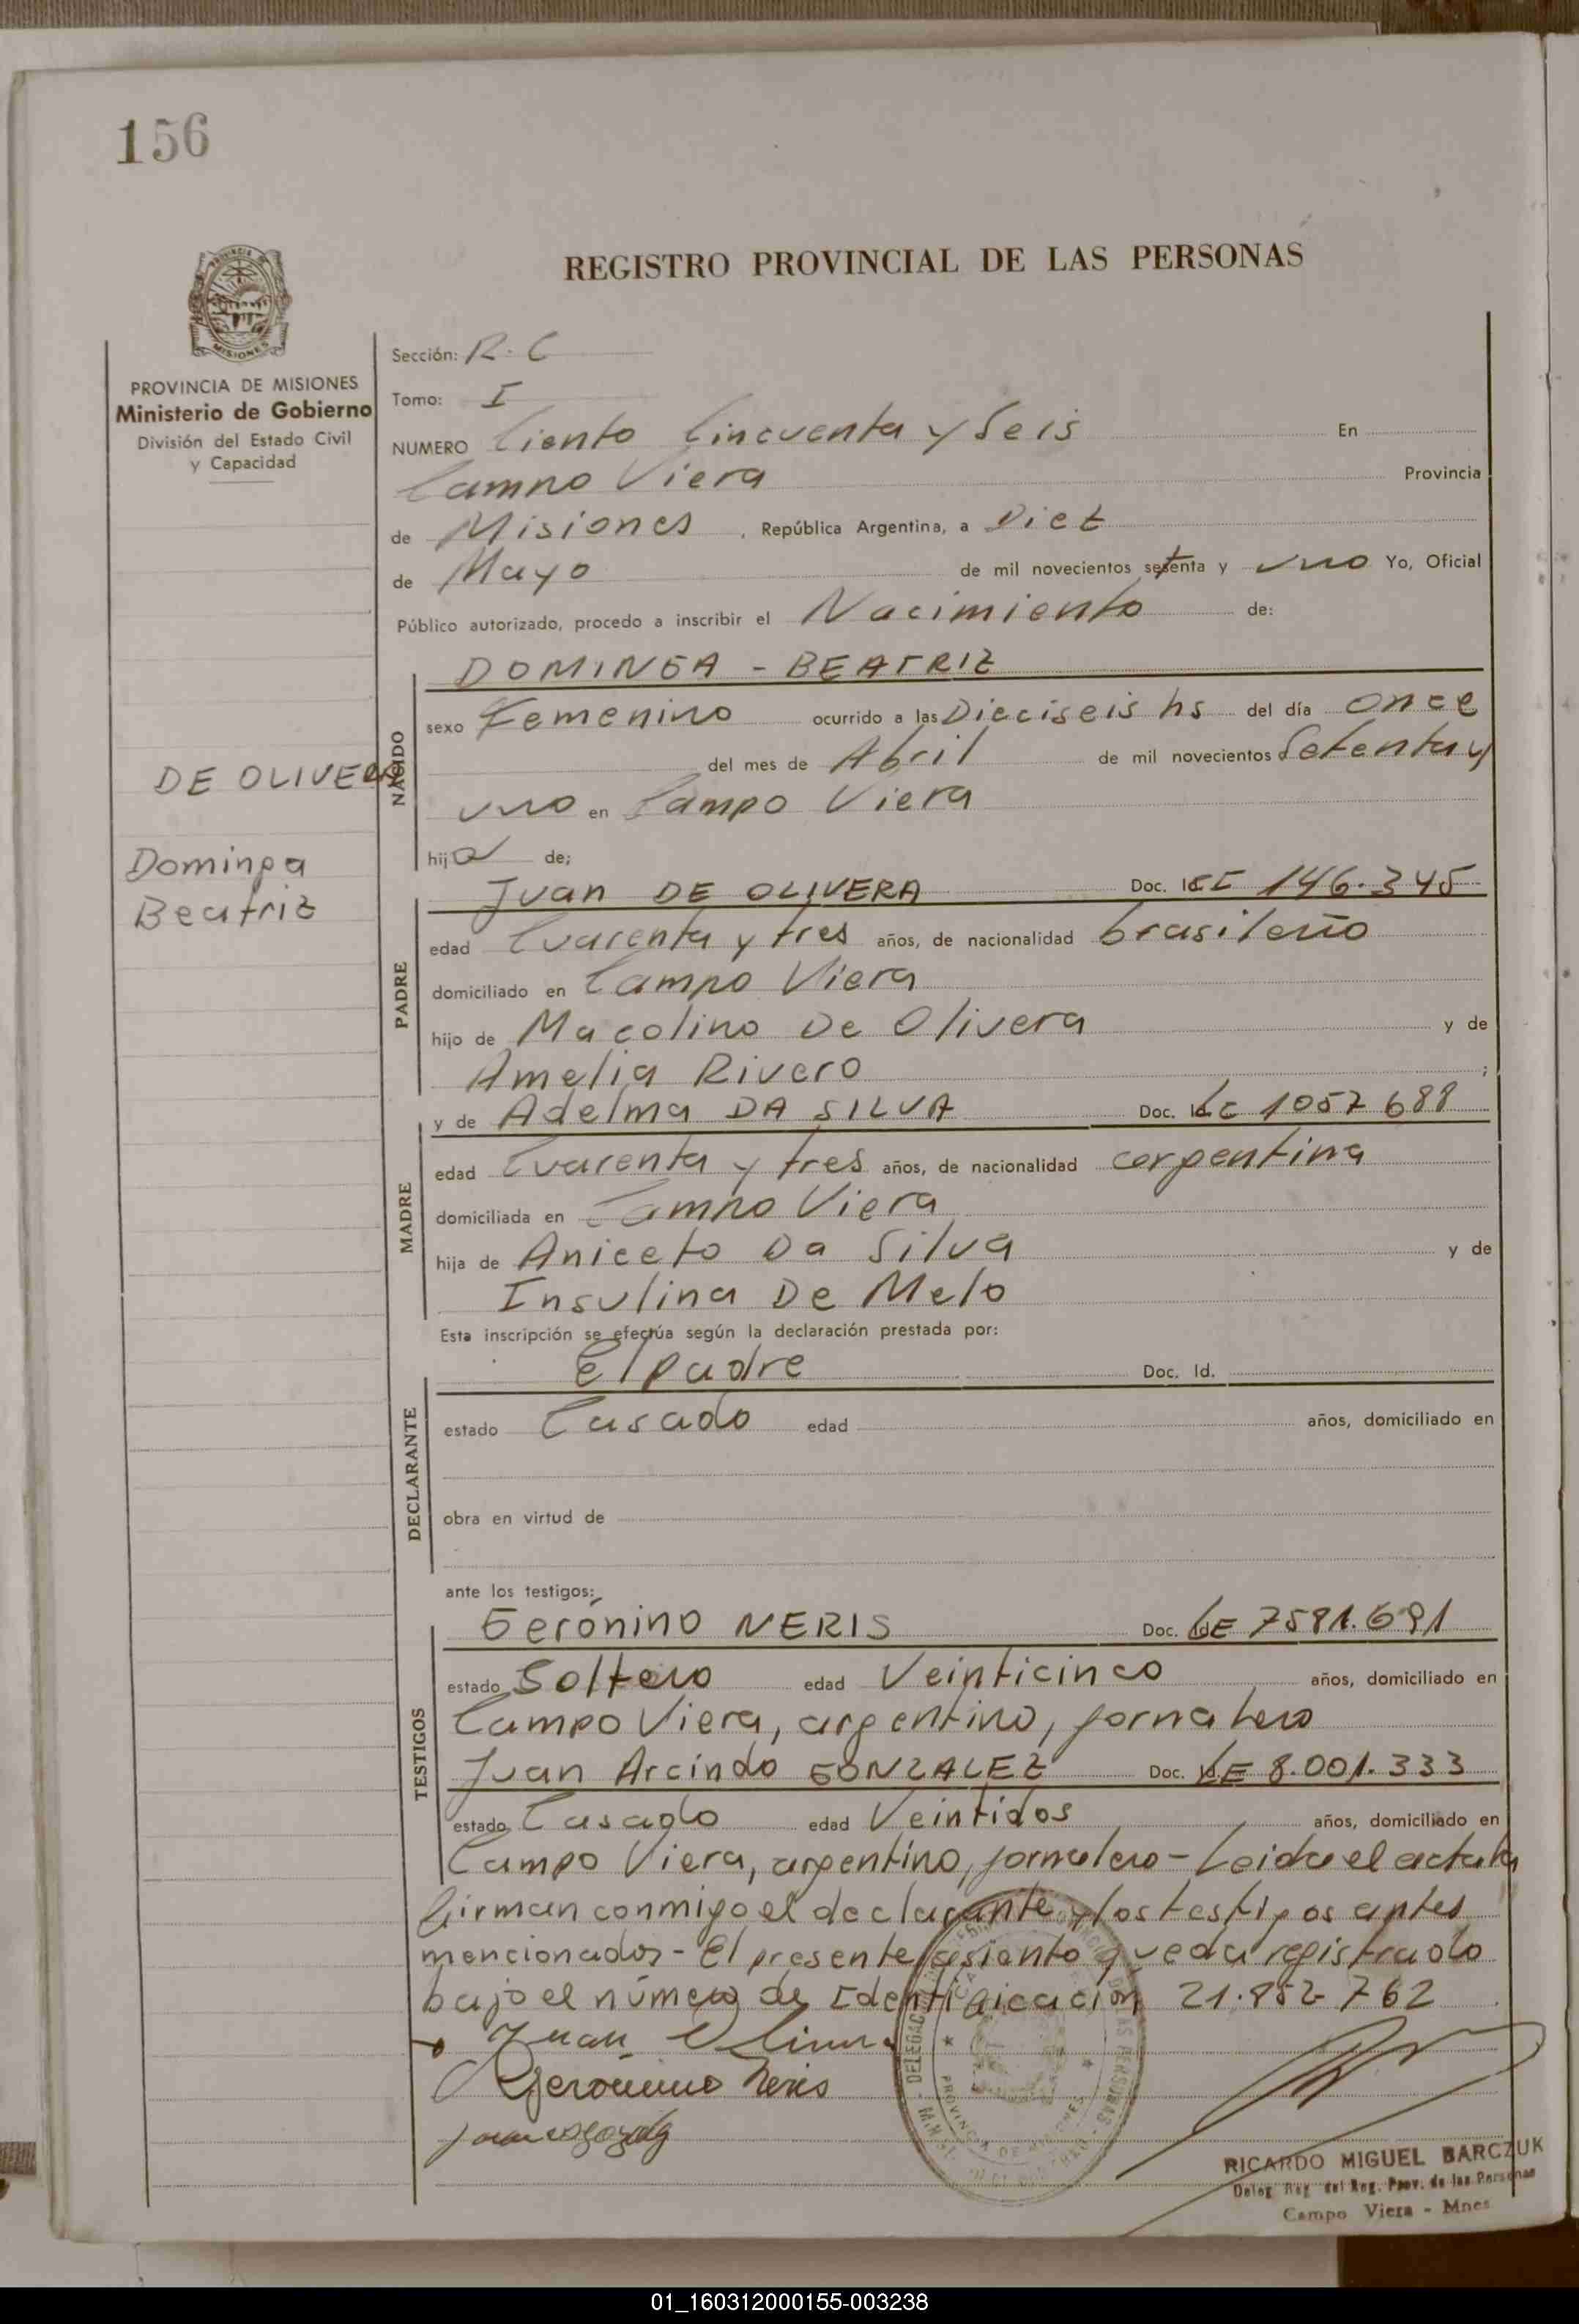 156
REGISTRO PROVINCIAL DE LAS PERSONAS
MISIONES
PROVINCIA DE MISIONES
Ministerio de Gobierno
División del Estado Civil
y Capacidad
Sección: R.C
Tomo: I
NUMERO Ciento Cincuenta y Seis En
Campo Viera Provincia
de Misiones, República Argentina, a Diez
de Mayo de mil novecientos setenta y uno Yo, Oficial
Público autorizado, procedo a inscribir el Nacimiento de:
DOMINGA - BEATRIZ
NACIDO
sexo Femenino ocurrido a las Dieciseis hs del día once
del mes de Abril de mil novecientos Setenta y
uno en Campo Viera
hija de;
DE OLIVERA
Dominga
Beatriz
Juan DE OLIVERA Doc. Id. CI 146.345
PADRE
edad Cuarenta y tres años, de nacionalidad brasileño
domiciliado en Campo Viera
hijo de Macolino De Olivera y de
Amelia Rivero ;
y de Adelma DA SILVA Doc. Id. LC 1057688
MADRE
edad Cuarenta y tres años, de nacionalidad argentina
domiciliada en Campo Viera
hija de Aniceto Da Silva y de
Insulina De Melo
Esta inscripción se efectúa según la declaración prestada por:
El padre Doc. Id.
DECLARANTE
estado Casado edad años, domiciliado en
obra en virtud de
ante los testigos:
Gerónino NERIS Doc. Id. LE 7581.691
TESTIGOS
estado Soltero edad Veinticinco años, domiciliado en
Campo Viera, argentino, jornalero
Juan Arcindo GONZALEZ Doc. Id. LE 8.001.333
estado Casado edad Veintidos años, domiciliado en
Campo Viera, argentino, jornalero - Leida el acta la
firman conmigo el declarante y los testigos antes
mencionados - El presente asiento queda registrado
bajo el número de Identificación 21.852.762
Juan Olivera
Gerónimo Neris
RICARDO MIGUEL BARCZUK
Deleg. Reg. del Reg. Prov. de las Personas
Campo Viera - Mnes
01_160312000155-003238